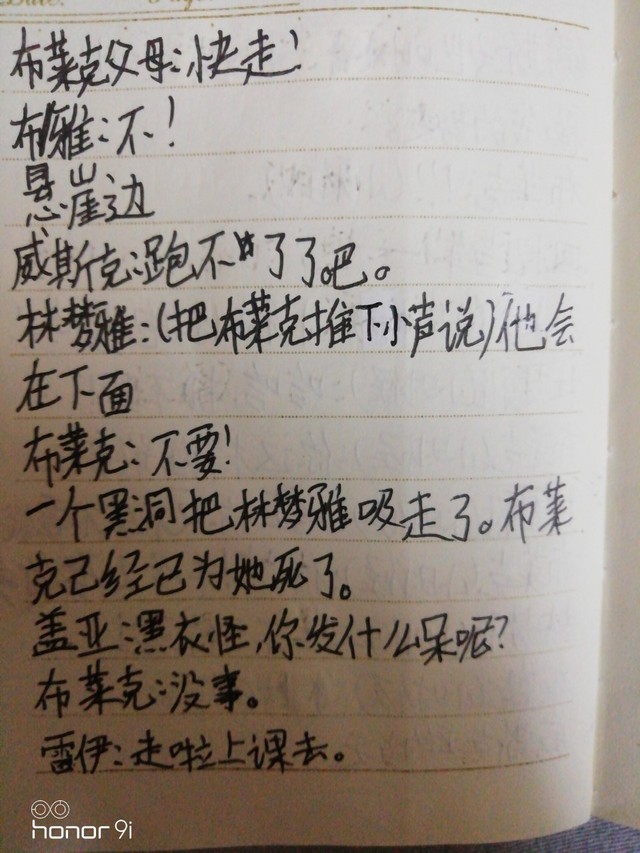 布莱克父母:快走!
布雅:不!
悬崖边
威斯克:跑不了了吧。
林梦雅:(把布莱克推下小声说)他会
在下面
布莱克:不要!
一个黑洞把林梦雅吸走了。布莱
克己经已为她死了。
盖亚:黑衣怪,你发什么呆呢?
布莱克:没事。
雷伊:走啦上课去。
honor 9i